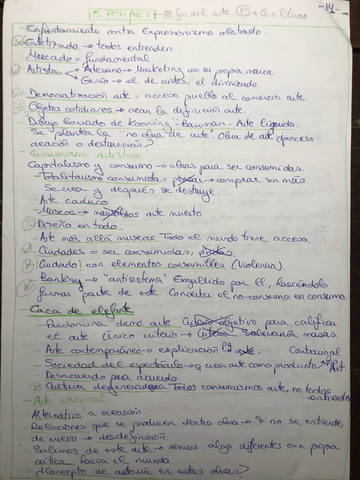 5. POP ART
-14-
- Enfrentamiento contra Expresionismo abstracto.
→ todos entienden
Mercado = fundamental
Artista Artesano → Marketing con su propia marca.
Genio → el de antes, el divinizado
- Democratización arte = acceso pueblo al comercio arte.
- Objetos cotidianos → crean la definición arte.
- Dibujo borrado de Kooning - Bauman - Arte líquido.
Se plantea la "no obra de arte". Obra de arte proceso
creación o destrucción?
- Consumismo artístico
Capitalismo y consumo → obras para ser consumidas.
- Totalitarismo consumista = comprar sin más
Se crea y después se destruye.
- Arte caduco
- Museos → arte muerto
- Diseño en todo.
- Arte más allá museos. Todo el mundo tiene acceso.
- Ciudades = ser consumidas,
- Ciudad con elementos consumibles (Violencia).
- Banksy → "antisistema" Engullido por él, haciéndolo
formar parte de este. Convierte el no-consumo en consumo.
- Caca de elefante
- Predomina demo arte objetivo para calificar
el arte. Único criterio →
- Arte contemporáneo → explicación
- Sociedad del espectáculo → q crea arte como producto
- Desacuerdo para acuerdo
- Cultura degenerada. Todos consumismos arte, no todos
entienden
- Arte
Alternativo a creación
Relaciones que se producen dentro obra → Si no se entiende,
de nuevo → desdefinición
- Salimos de este arte → somos algo diferentes con propia
crítica hacia el mundo
- ¿Concepto de autoría en estas obras?